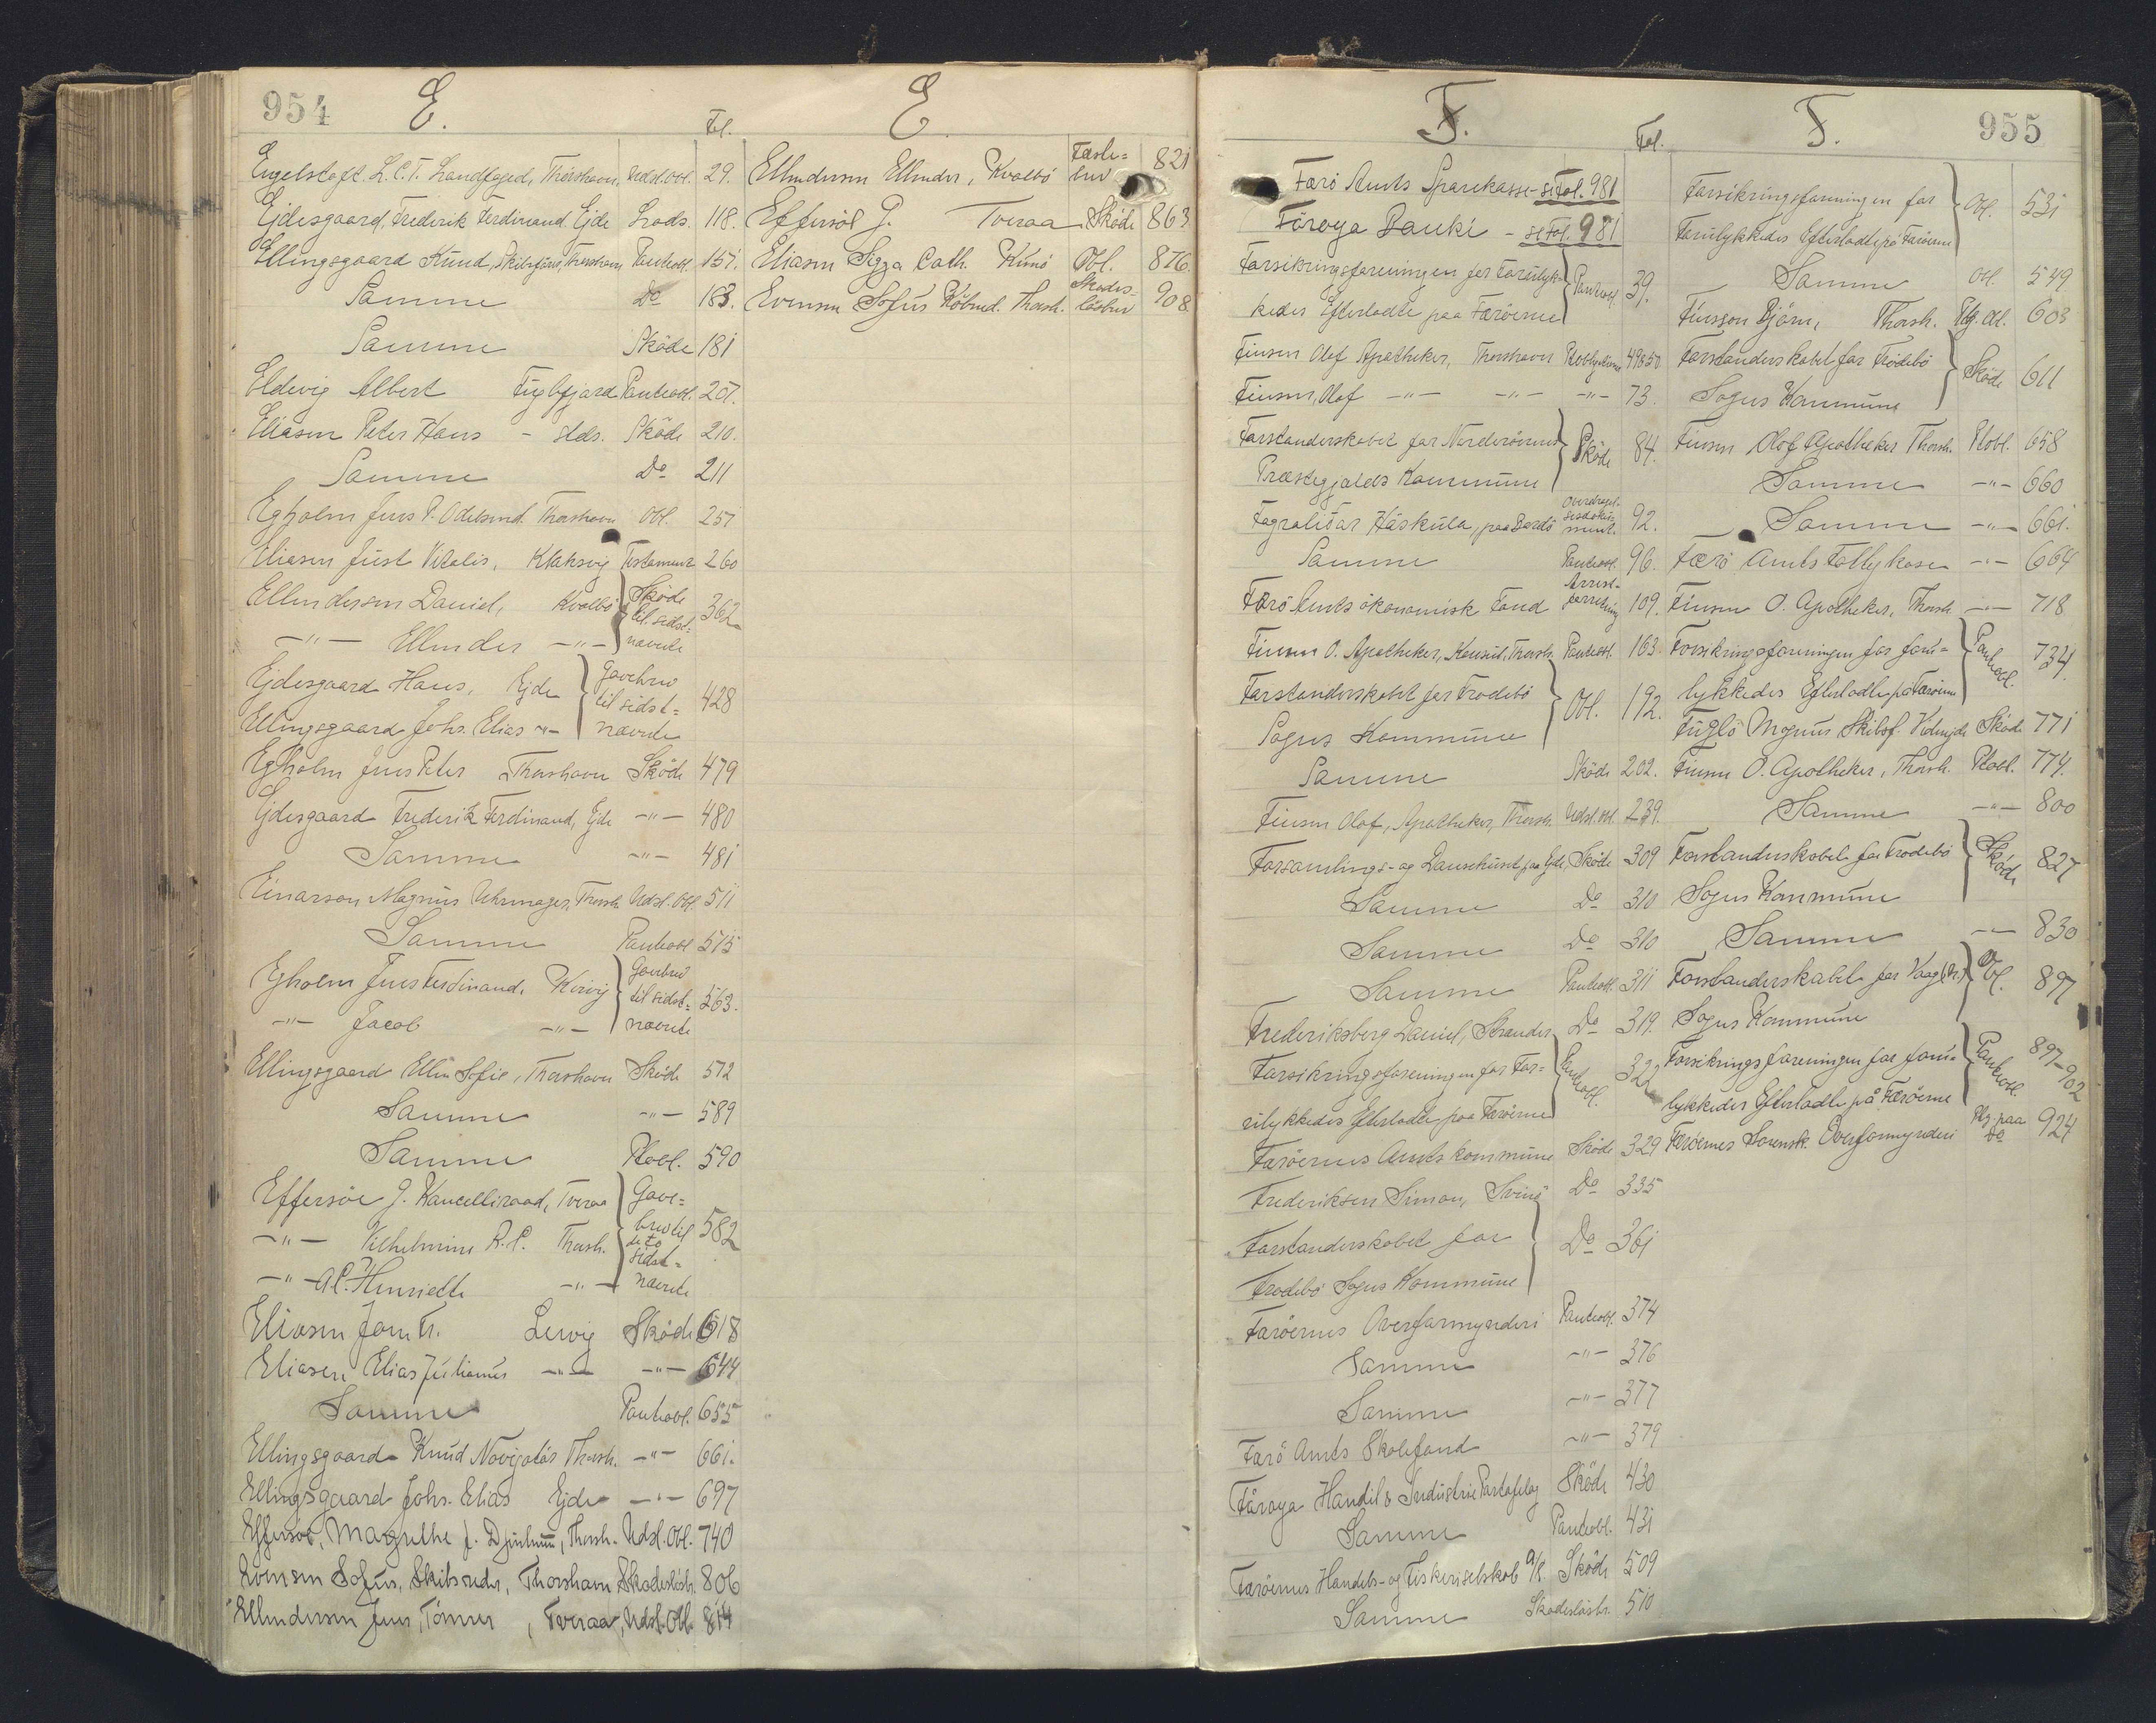 954 E. Fol. E
Engelstoft. L.C.T. Landfoged, Thorshavn. Udsl. Obl. 29.
Ejdesgaard, Frederik Ferdinand Ejde 118.
Ellingsgaard Knud, Skibsförer, Thorshavn Panteobl. 157.
Samme Do 183.
Samme Sköde 181
Eldevig Albert Fuglefjord Panteobl. 207.
Eliasen Peter Hans - stds. Sköde 210.
Samme Do 211
Egholm Jens P. Odelsmd. Thorshavn Obl. 257
Eliasen Just Vitalis, Klaksvig Testament 260
Ellendersen Daniel, Kvalbö Sköde
til sidst= 362
-"- Ellender -"- nævnte
Ejdesgaard Hans, Ejde Gavebrev
til sidst= 428
Ellingsgaard Johs. Elias -"- nævnte
Egholm Jens Peter Thorshavn Sköde 479
Ejdesgaard Frederik Ferdinand, Ejde -"- 480
Samme -"- 481
Einarson Magnus Uhrmager, Thorsh. Udsl. Obl. 511
Samme Panteobl 515
Egholm Jens Ferdinand, Gavebrev
til sidst= 563.
-"- Jacob -"- nævnte
Ellingsgaard Ellen Sofie, Thorshavn Sköde 572
Samme -"- 589
Samme Ptobl. 590
Effersöe J. Kancelliraad, Tveraa Gave=
brev til 582
-"- Vilhelmine R.P. Thorsh. de to
sidst=
-"- Henriette -"- nævnte
Eliasen Joen Fr. Lervig Sköde 618
Eliasen Elias Julianus -"- -"- 644
Samme Panteobl. 655
Ellingsgaard Knud Navigatör Thorsh. -"- 661.
Ellingsgaard Johs. Elias Ejde -"- 697
Effersöe, Magrethe f. Djurhuus, Thorsh. Udsl. Obl. 740
Evensen Sofus, Skibsreder, Thorshavn Skadeslösbr. 806
Ellendersen Jens, Tömrer, Tveraa, Udsl. Obl. 814
Ellendersen Ellender, Kvalbö Fæste=
brev 821
Effersöe J. Tveraa Sköde 863
Eliasen Sigga Cath. Kunö Obl. 876
Evensen Sofus Köbmd. Thorsh. Skades=
lösbrev 908
F. Fol. F. 955
Færö Amts Sparekasse - se Fol. 981
Föroya Banki - se Fol. 981
Forsikringsforeningen for Forulyk=
kedes Efterladte paa Færöerne Panteobl. 39.
Finsen Olof Apotheker, Thorshavn 49 & 50
Finsen, Olof -"- -"- -"- 73.
Forstanderskabet for Norderöernes
Præstegjælds Kommune Sköde 84.
Fagralidar Háskúla, paa Bordö Overdragel=
sesdoku=
ment. 92.
Samme Panteobl. 96.
Færö Amts ökonomisk Fond Arrest=
forretning 109.
Finsen O. Apotheker, Konsul, Thorsh. Panteobl. 163
Forstanderskabet for Frodebö
Sogns Kommune Obl. 192.
Samme Sköde 202.
Finsen Olof, Apotheker, Thorsh. Udsl. obl. 239.
Forsamlings- og Dansehuset paa Ejde, Sköde 309
Samme Do 310
Samme Do 310
Samme Panteobl. 311
Frederiksberg Daniel, Strender Do 319.
Forsikringsforeningen for For=
ulykkedes Efterladte paa Færöerne Panteobl. 322
Færöernes Amtskommune Sköde 329
Frederiksen Simon, Svinö Do 335
Forstanderskabet for
Frodebö Sogns Kommune Do 361
Færöernes Overformynderi Panteobl. 374
Samme -"- 376
Samme -"- 377
Færö Amts Skolefond -"- 379
Föroya Handils & Industrie Partafelag Sköde 430
Samme Panteobl. 431
Færöernes Handels- og Fiskeriselskab A/S. Sköde 509
Samme Skadeslösbr. 510
Forsikringsforeningen for
Forulykkedes Efterladte på Færöerne Obl. 531
Samme Obl 549
Finsson Björn, Thorsh. 603
Forstanderskabet for Frodebö
Sogns Kommune Sköde 611
Finsen Olof Apotheker Thorsh. Ptobl. 658
Samme -"- 660
Samme -"- 661.
Færö Amts Fattigkasse -"- 664
Finsen O. Apotheker, Thorsh -"- 718
Forsikringsforeningen for foru=
lykkedes Efterladte på Færöerne Panteobl. 734.
Fuglö Mgnus Skibsf. Videjde Sköde 771
Finsen O. Apotheker, Thorsh. Ptobl. 774.
Samme -"- 800
Forstanderskabet for Frodebö
Sogns Kommune Sköde 827
Samme -"- 830
Forstanderskabet for Vaag
Sogns Kommune Obl. 897
Forsikringsforeningen for foru=
lykkedes Efterladte på Færöerne Panteobl. 897-902
Færöernes Sorensk. Overformynderi 924